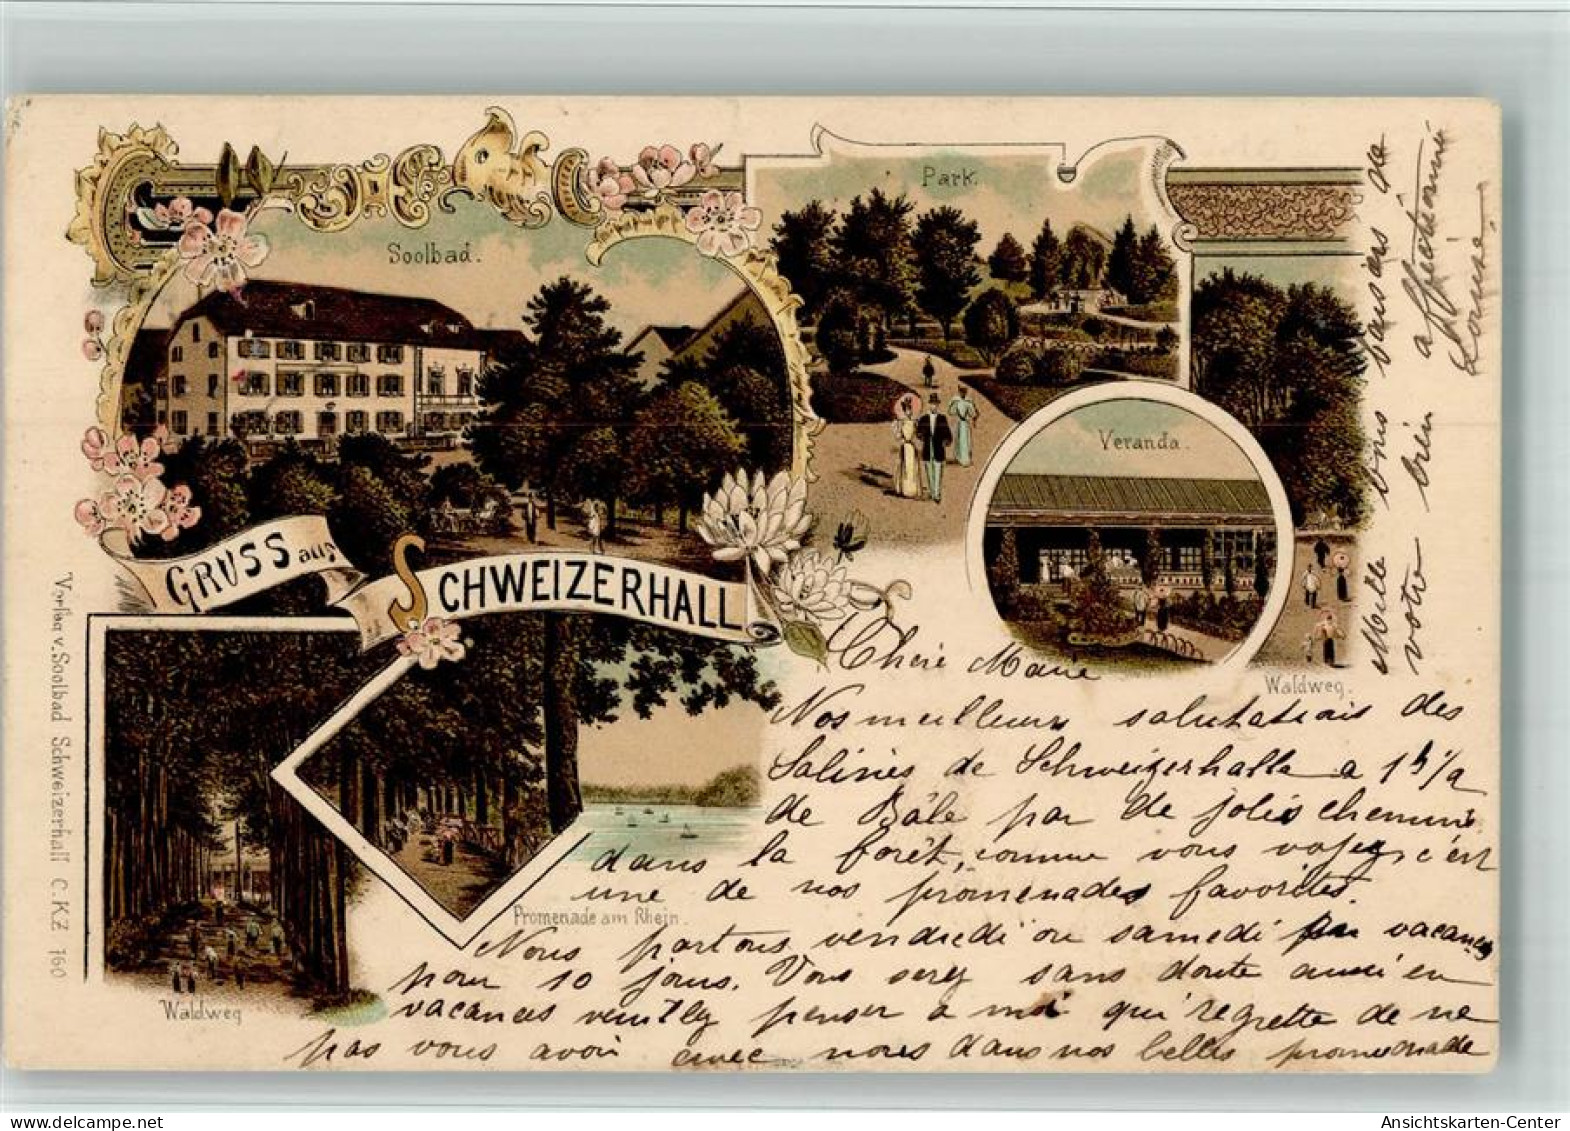 Soolbad.
Park.
Veranda.
GRUSS aus
SCHWEIZERHALL
Waldweg.
Promenade am Rhein.
Waldweg
Verlag v. Soolbad Schweizerhall C.K.Z. 160
Chère Marie
Nos meilleurs salutations des
Salines de Schweizerhalle a 1 h 1/2
de Bâle par de jolis chemins
dans la forêt, comme vous voyez c'est
une de nos promenades favorites.
Nous partons vendredi ou samedi en vacances
pour 10 jours. Vous serez sans doute aussi en
vacances veuillez penser a moi qui regrette de ne
pas vous avoir avec nous dans nos belles promenade
Mille bons baisers de
votre bien affectionné
Louise.
delcampe.net
Ansichtskarten-Center